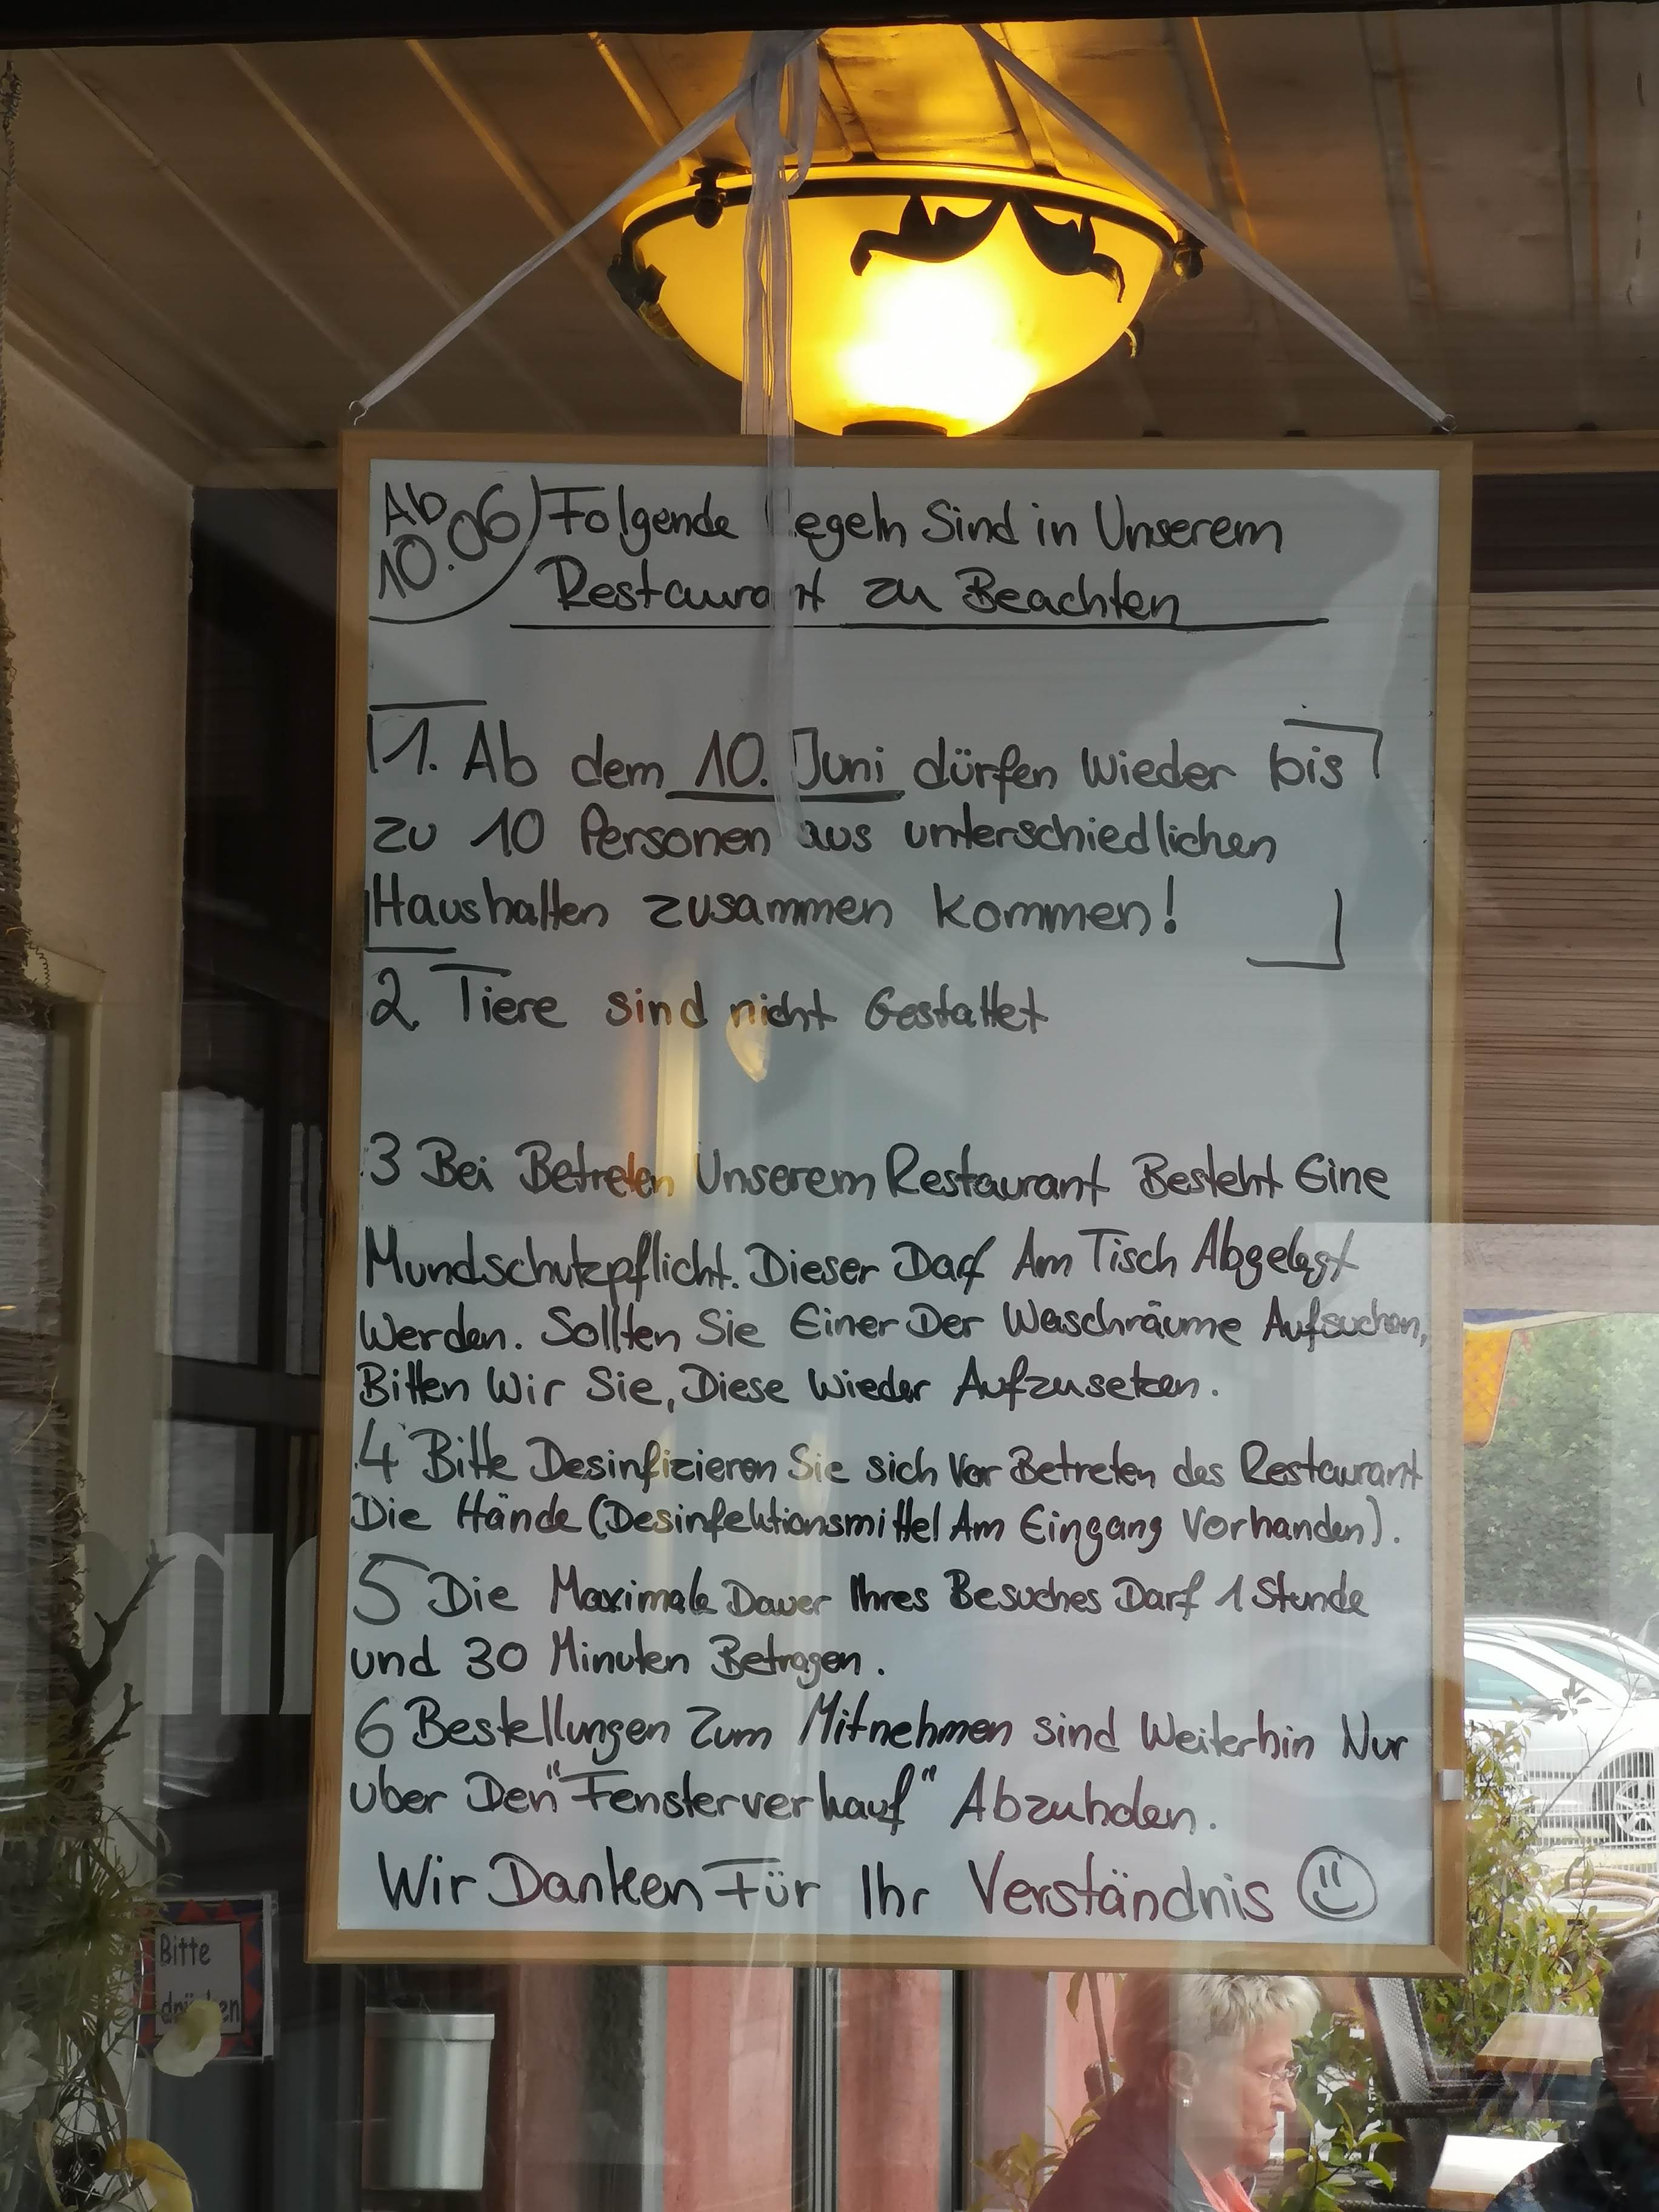 Ab
10.06
Folgende Regeln Sind in Unserem
Restaurant zu Beachten
1. Ab dem 10. Juni dürfen Wieder bis
zu 10 Personen aus unterschiedlichen
Haushalten zusammen kommen!
2. Tiere sind nicht Gestattet
3 Bei Betreten Unserem Restaurant Besteht Eine
Mundschutzpflicht. Dieser Darf Am Tisch Abgelegt
Werden. Sollten Sie Einer Der Waschräume Aufsuchen,
Bitten Wir Sie, Diese Wieder Aufzusetzen.
4 Bitte Desinfizieren Sie sich Vor Betreten des Restaurant
Die Hände (Desinfektionsmittel Am Eingang Vorhanden).
5 Die Maximale Dauer Ihres Besuches Darf 1 Stunde
und 30 Minuten Betragen.
6 Bestellungen Zum Mitnehmen sind Weiterhin Nur
über Den "Fensterverkauf" Abzuholen.
Wir Danken Für Ihr Verständnis
Bitte
drücken